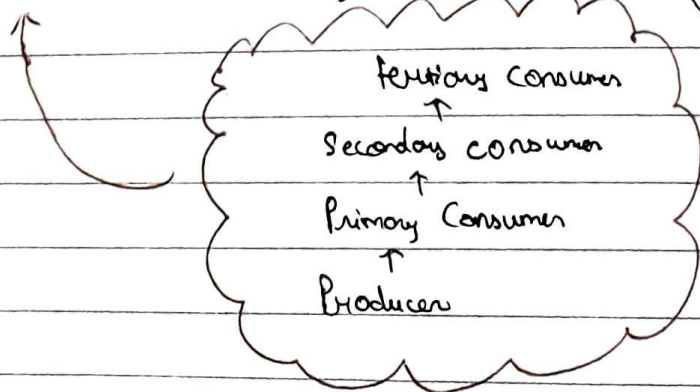 Tertiary consumer
↑
Secondary consumer
↑
Primary Consumer
↑
Producer